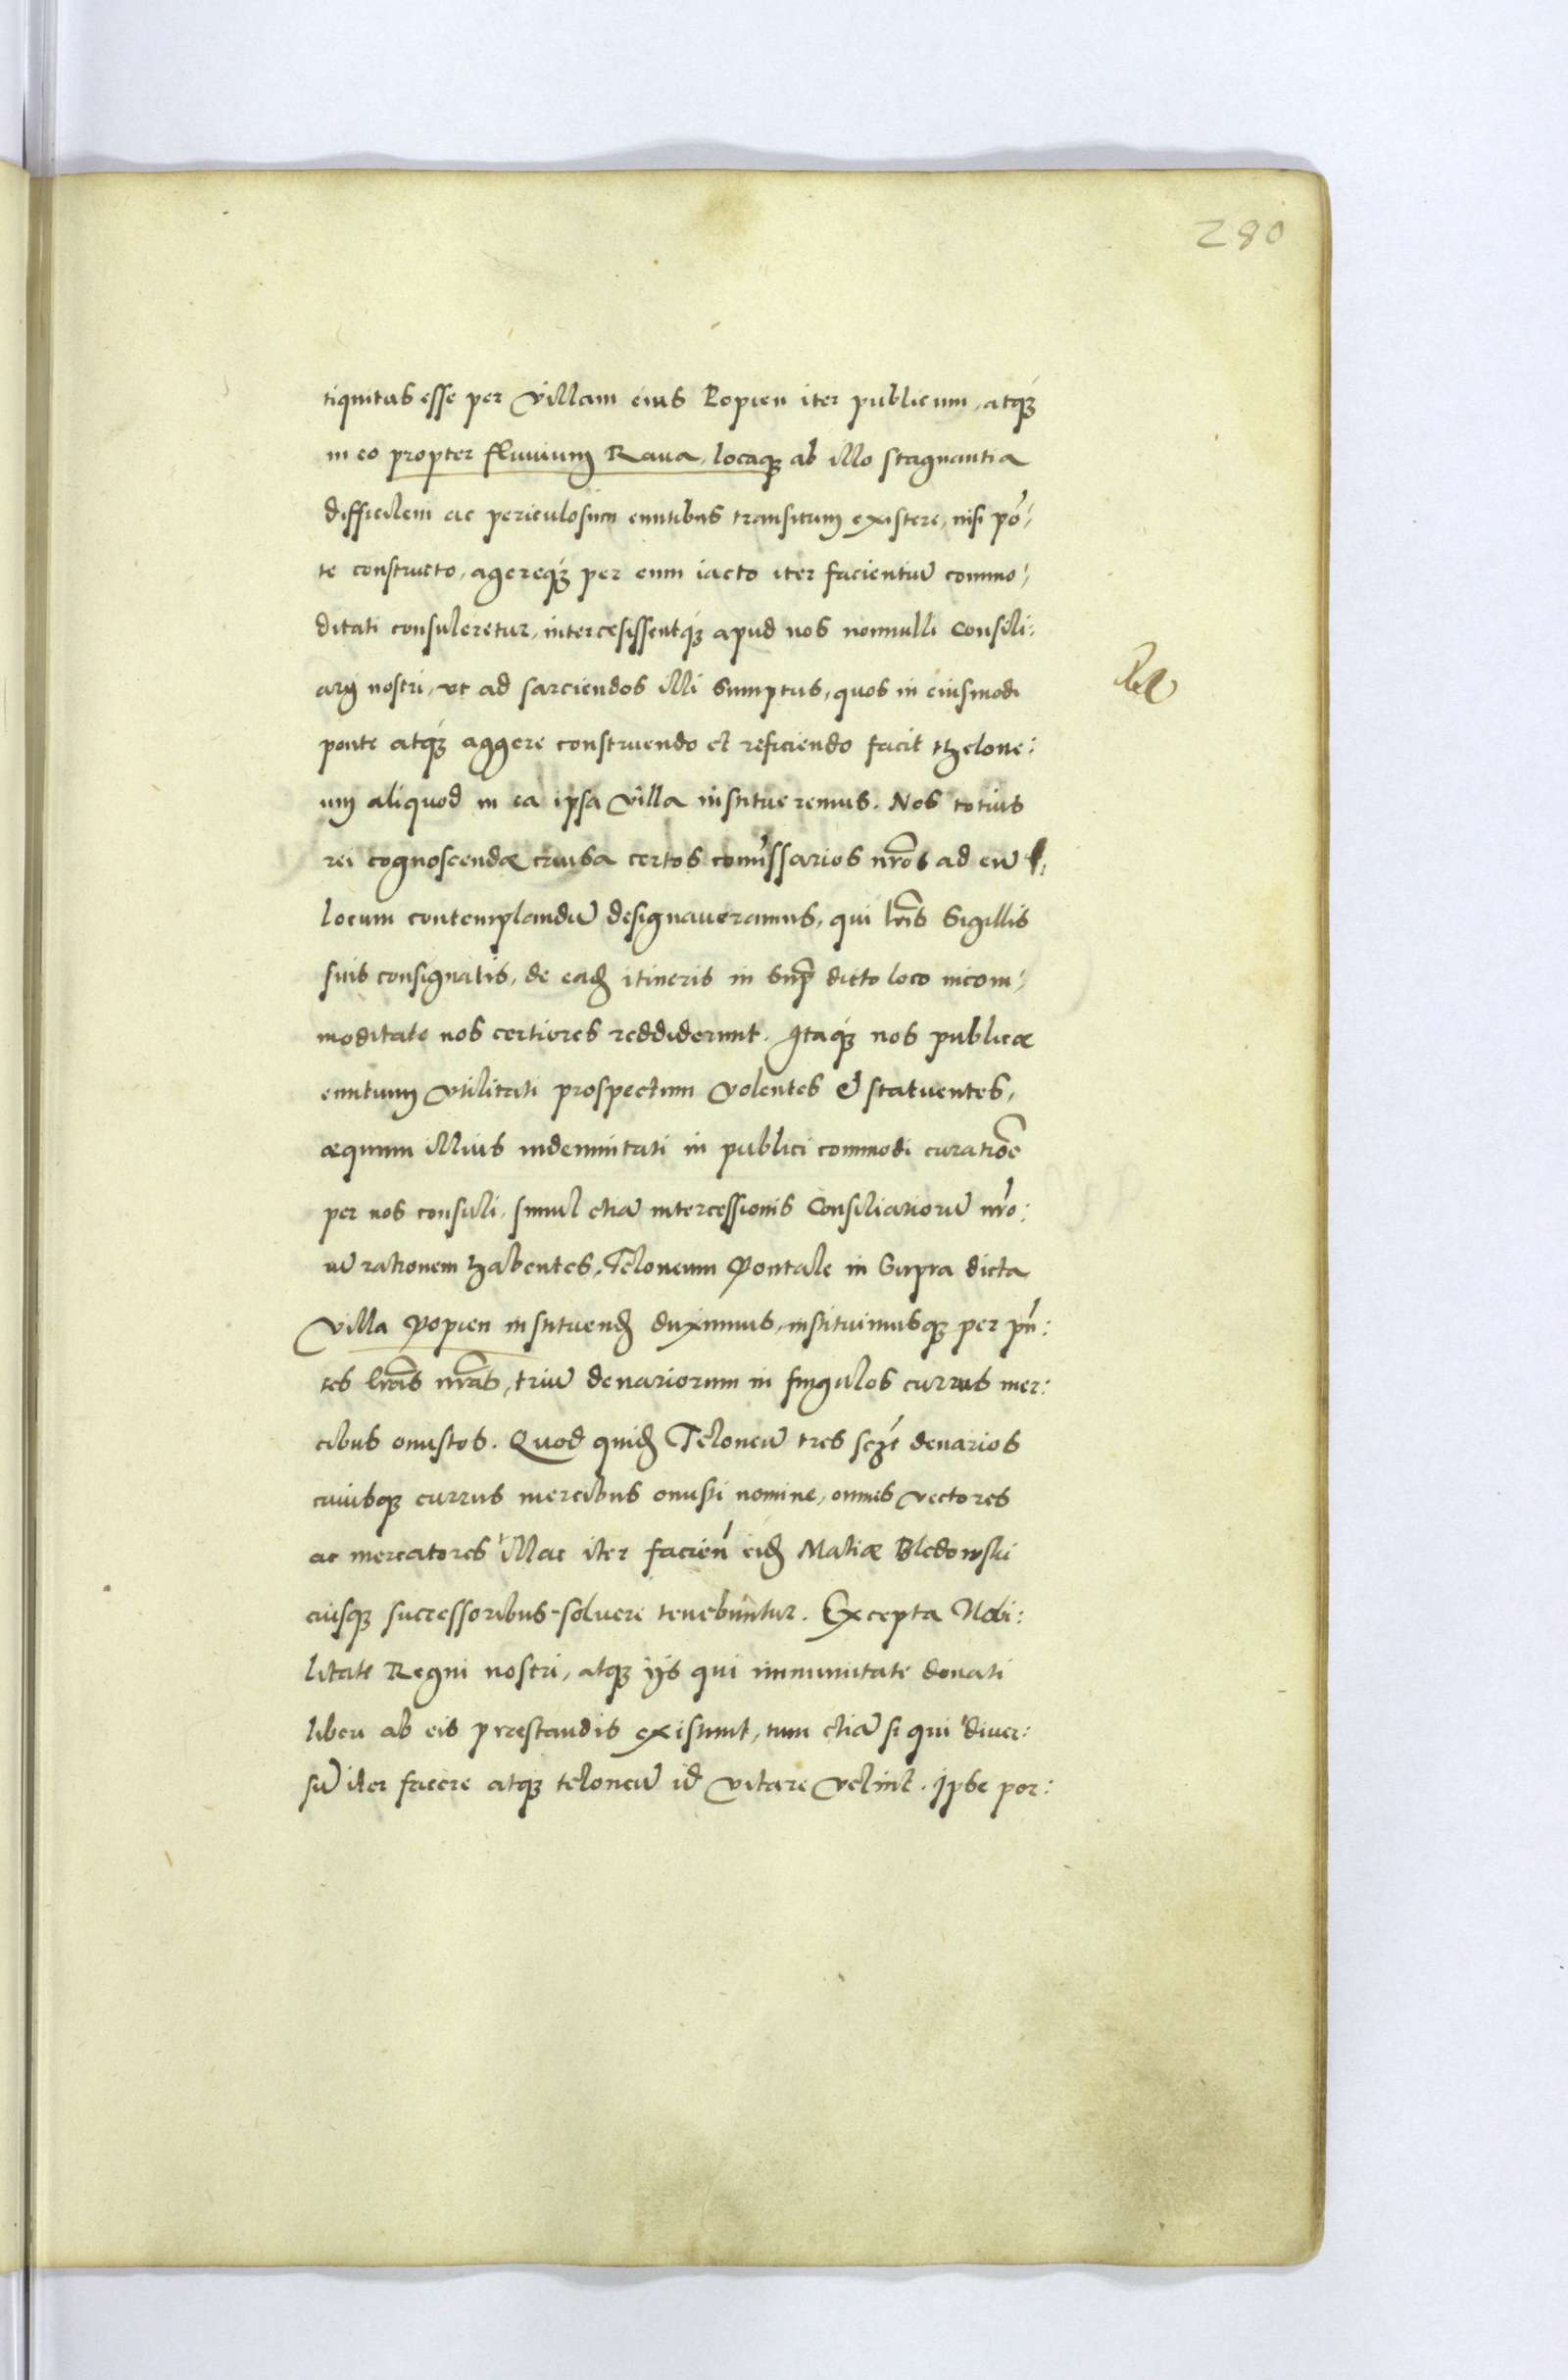 280
tiquitus esse per villam eius Popien iter publicum, atq́ꝫ
in eo propter fluuium Raua, locaqꝫ ab illo stagnantia
difficilem ac periculosum euntibus transitum existere, nisi põ,
te constructo, agereq́ꝫ per eum iacto iter facientiũ commo,
ditati consuleretur, intercesissentq́ꝫ apud nos nonnulli Consili:
arij nostri, vt ad sarciendos illi sumptus, quos in eiusmodi
ponte atq́ꝫ aggere construendo et reficiendo facit thelone:
um aliquod in ea ipsa villa institueremus. Nos totius
rei cognoscendæ causa certos com̃issarios nr̃os ad eũ
locum contemplandũ designaueramus, qui lr̃is Sigillis
suis consignatis, de eadꝫ itineris in sup̃ dicto loco incom,
moditate nos certiores reddiderunt. Itaq́ꝫ nos publicæ
euntium vtilitati prospectum volentes & statuentes,
æquum illius indemnitati in publici commodi curatiõe
per nos consuli, simul etiã intercessionis Consiliariorũ nr̃o:
rũ rationem habentes, Teloneum Pontale in supra dicta
villa Popien instituendꝫ duximus, instituimusqꝫ per pñ:
tes lr̃as nr̃as, triũ denariorum in singulos currus mer:
cibus onustos. Quod quidꝫ Teloneũ tres scꝫt denarios
cuiusqꝫ currus mercibus onusti nomine, omnes vectores
ac mercatores illac iter facień eidꝫ Matiæ Bledowski
eiusqꝫ successoribus soluere tenebuntur. Excepta Nobi:
litate Regni nostri, atqꝫ ijs qui immunitate donati
liberi ab eis præstandis existunt, tum etiã si qui diuer:
sũ iter facere atqꝫ teloneũ id vitare velint. Ipse por: